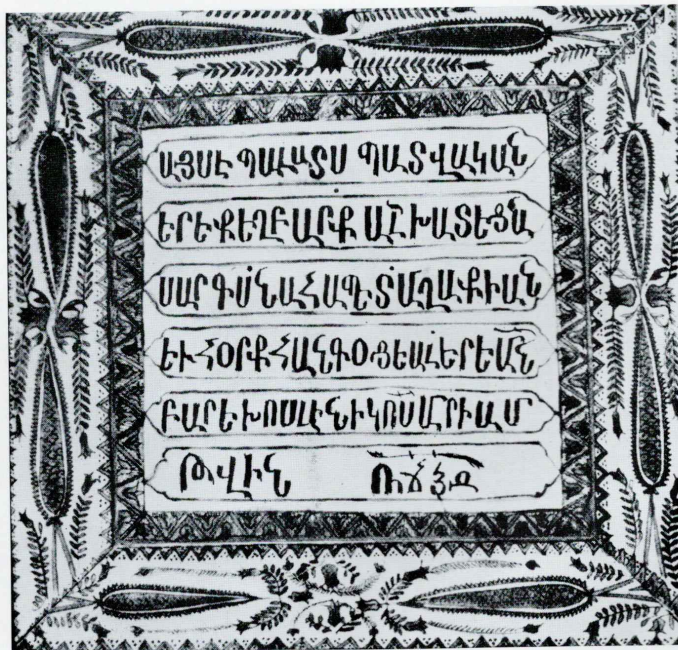 ԱՅՍԷ ՊԱԼԱՏՍ ՊԱՏՎԱԿԱՆ
ԵՐԵՔԵՂԲԱՐՔ ԱՇԽԱՏԵՑՆ
ՍԱՐԳԻՍՆԱՀԱՊԵՏՄԱՂԱՔԻԱՆ
ԵՒՀՕՐՔՀԱՆԳՕՑԵԱԼԵՐԵՄՆ
ԲԱՐԵԽՈՍԼԷՆԻԿՈՍՄՐԻԱՄ
ԹՎԻՆ